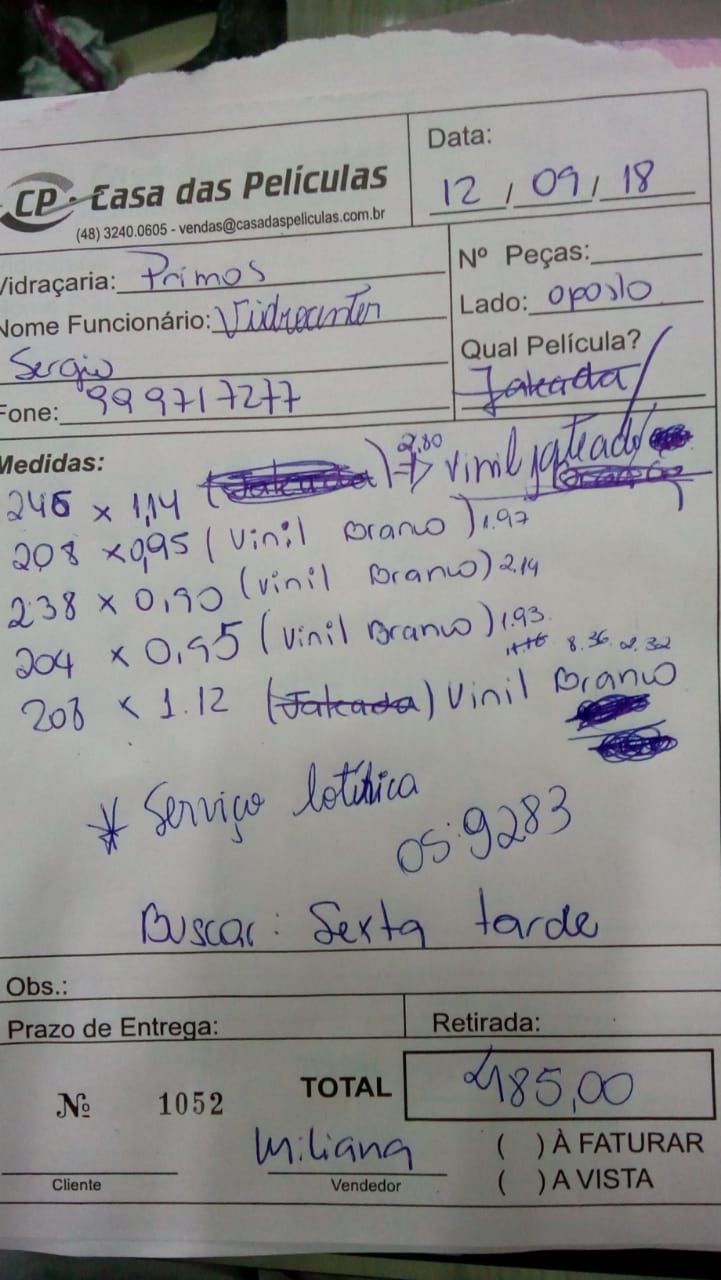 CP Casa das Películas
(48) 3240.0605 - vendas@casadaspeliculas.com.br
Data:
12 / 09 / 18
Vidraçaria: Primos
Nome Funcionário: Vidrocenter
Sergio
Fone: 999717277
Nº Peças:
Lado: oposto
Qual Película?
Jakada
Medidas:
246 x 1,14 (Jakada) → 2,80 Vinil jateado
208 x 0,95 (Vinil Branco) 1.97
238 x 0,90 (Vinil Branco) 2.14
204 x 0,95 (Vinil Branco) 1.93
8.36 2.32
208 x 1.12 (Jakada) Vinil Branco
* Serviço lotérica
OS: 9283
Buscar: Sexta tarde
Obs.:
Prazo de Entrega:
Retirada:
Nº 1052
TOTAL
485,00
Miliana
Cliente
Vendedor
( ) À FATURAR
( ) A VISTA